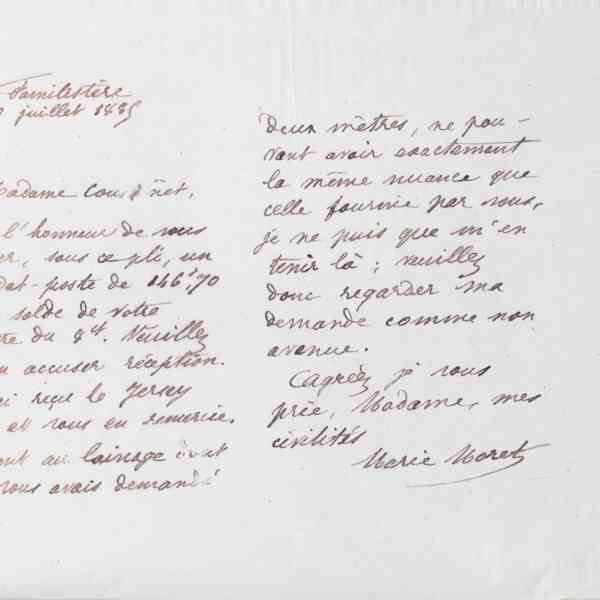 Familistère
juillet 1885
Madame Cousinet,
l'honneur de vous
er, sous ce pli, un
dat-poste de 146f,70
solde de votre
re du 8 ct. Veuillez
accuser réception.
i reçu le Jersey
et vous en remercie.
ant au lainage dont
vous avais demandé
deux mètres, ne pou-
vant avoir exactement
la même nuance que
celle fournie par vous,
je ne puis que m'en
tenir là ; veuillez
donc regarder ma
demande comme non
avenue.
Agréez, je vous
prie, Madame, mes
civilités
Marie Moret